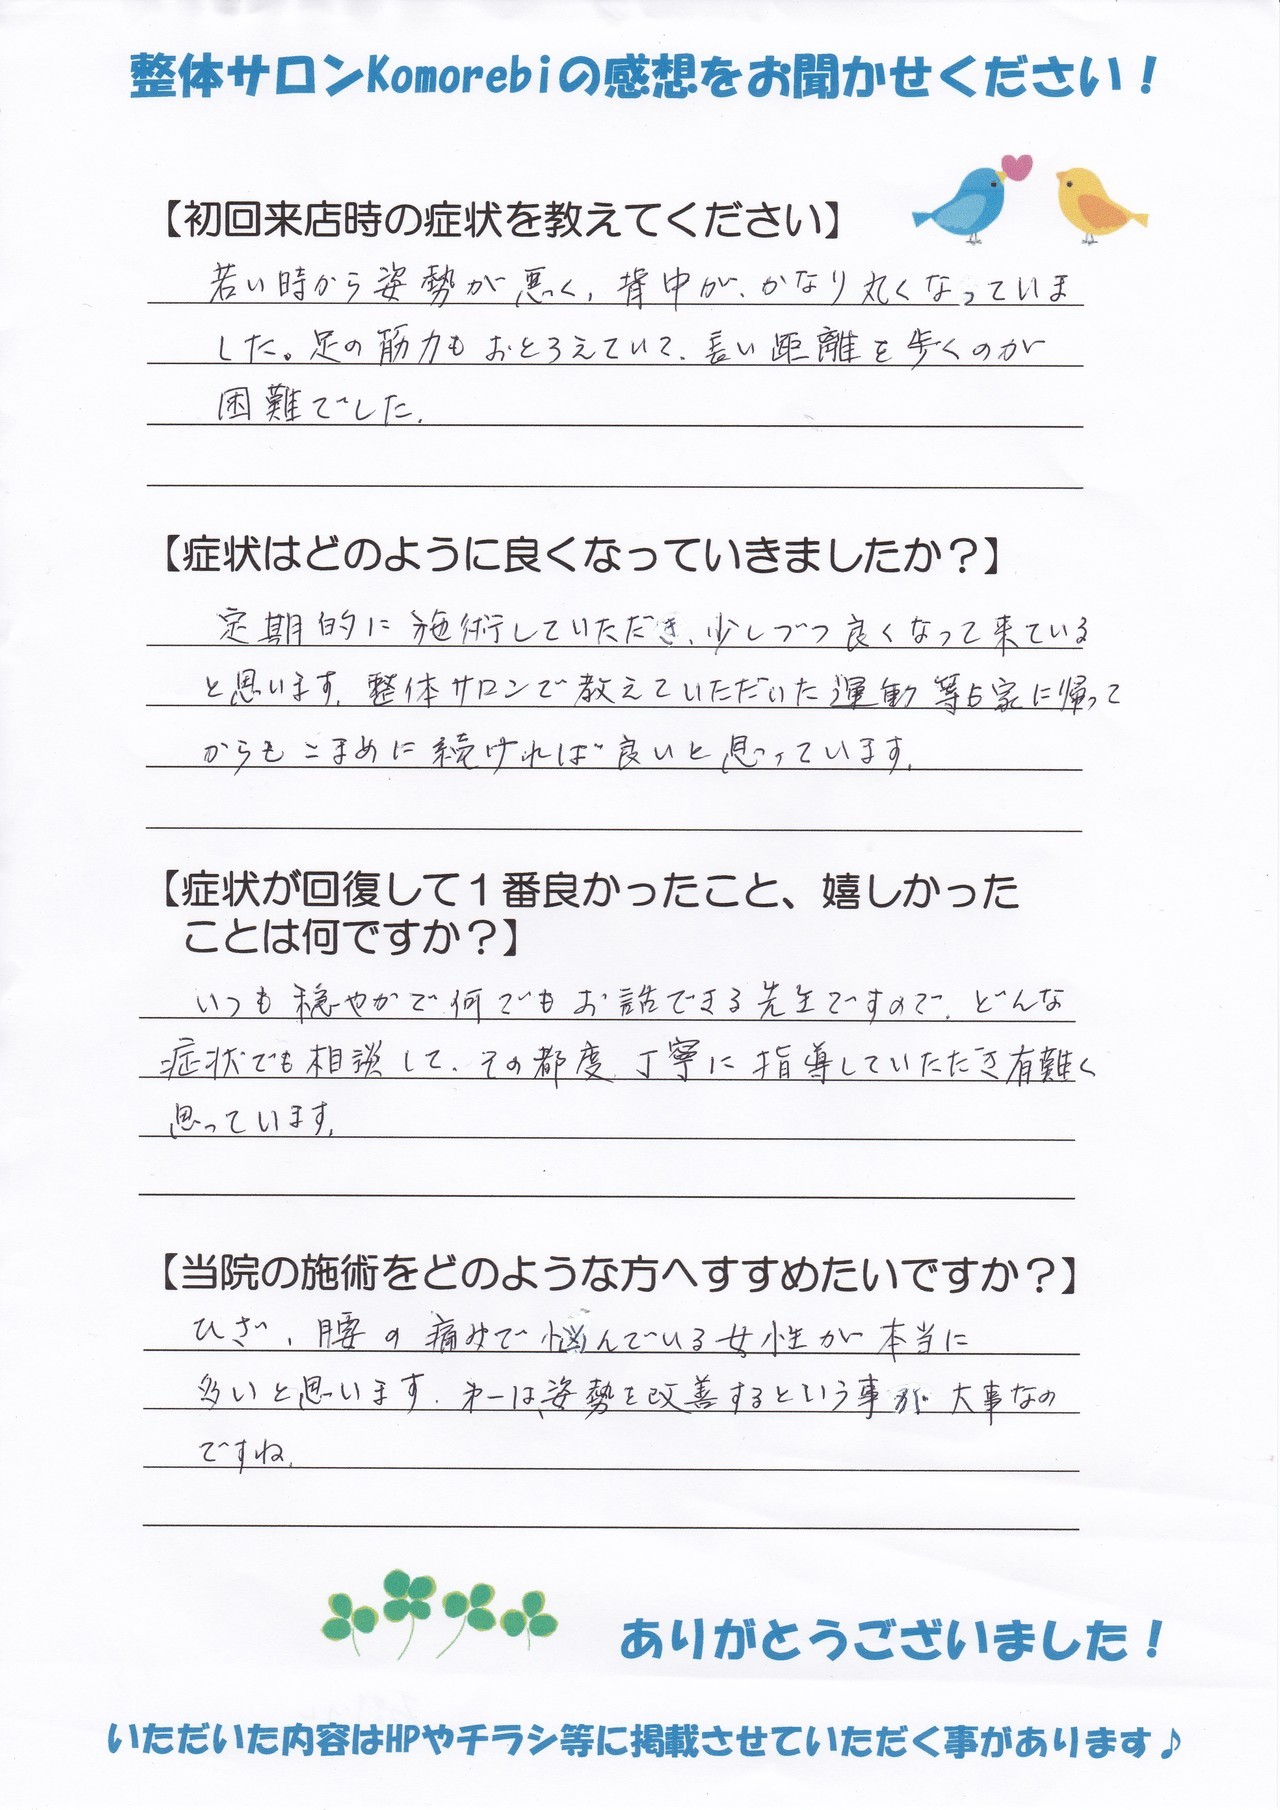 整体サロンKomorebiの感想をお聞かせください！
【初回来店時の症状を教えてください】
若い時から姿勢が悪く、背中が、かなり丸くなっていま
した。足の筋力もおとろえていて、長い距離を歩くのが
困難でした。
【症状はどのように良くなっていきましたか？】
定期的に施術していただき、少しづつ良くなって来ている
と思います。整体サロンで教えていただいた運動等も家に帰って
からもこまめに続ければ良いと思っています。
【症状が回復して１番良かったこと、嬉しかった
ことは何ですか？】
いつも穏やかで何でもお話できる先生ですので、どんな
症状でも相談して、その都度、丁寧に指導していただき有難く
思っています。
【当院の施術をどのような方へすすめたいですか？】
ひざ、腰の痛みで悩んでいる女性が本当に
多いと思います。第一は姿勢を改善するという事が大事なの
ですね。
ありがとうございました！
いただいた内容はHPやチラシ等に掲載させていただく事があります♪